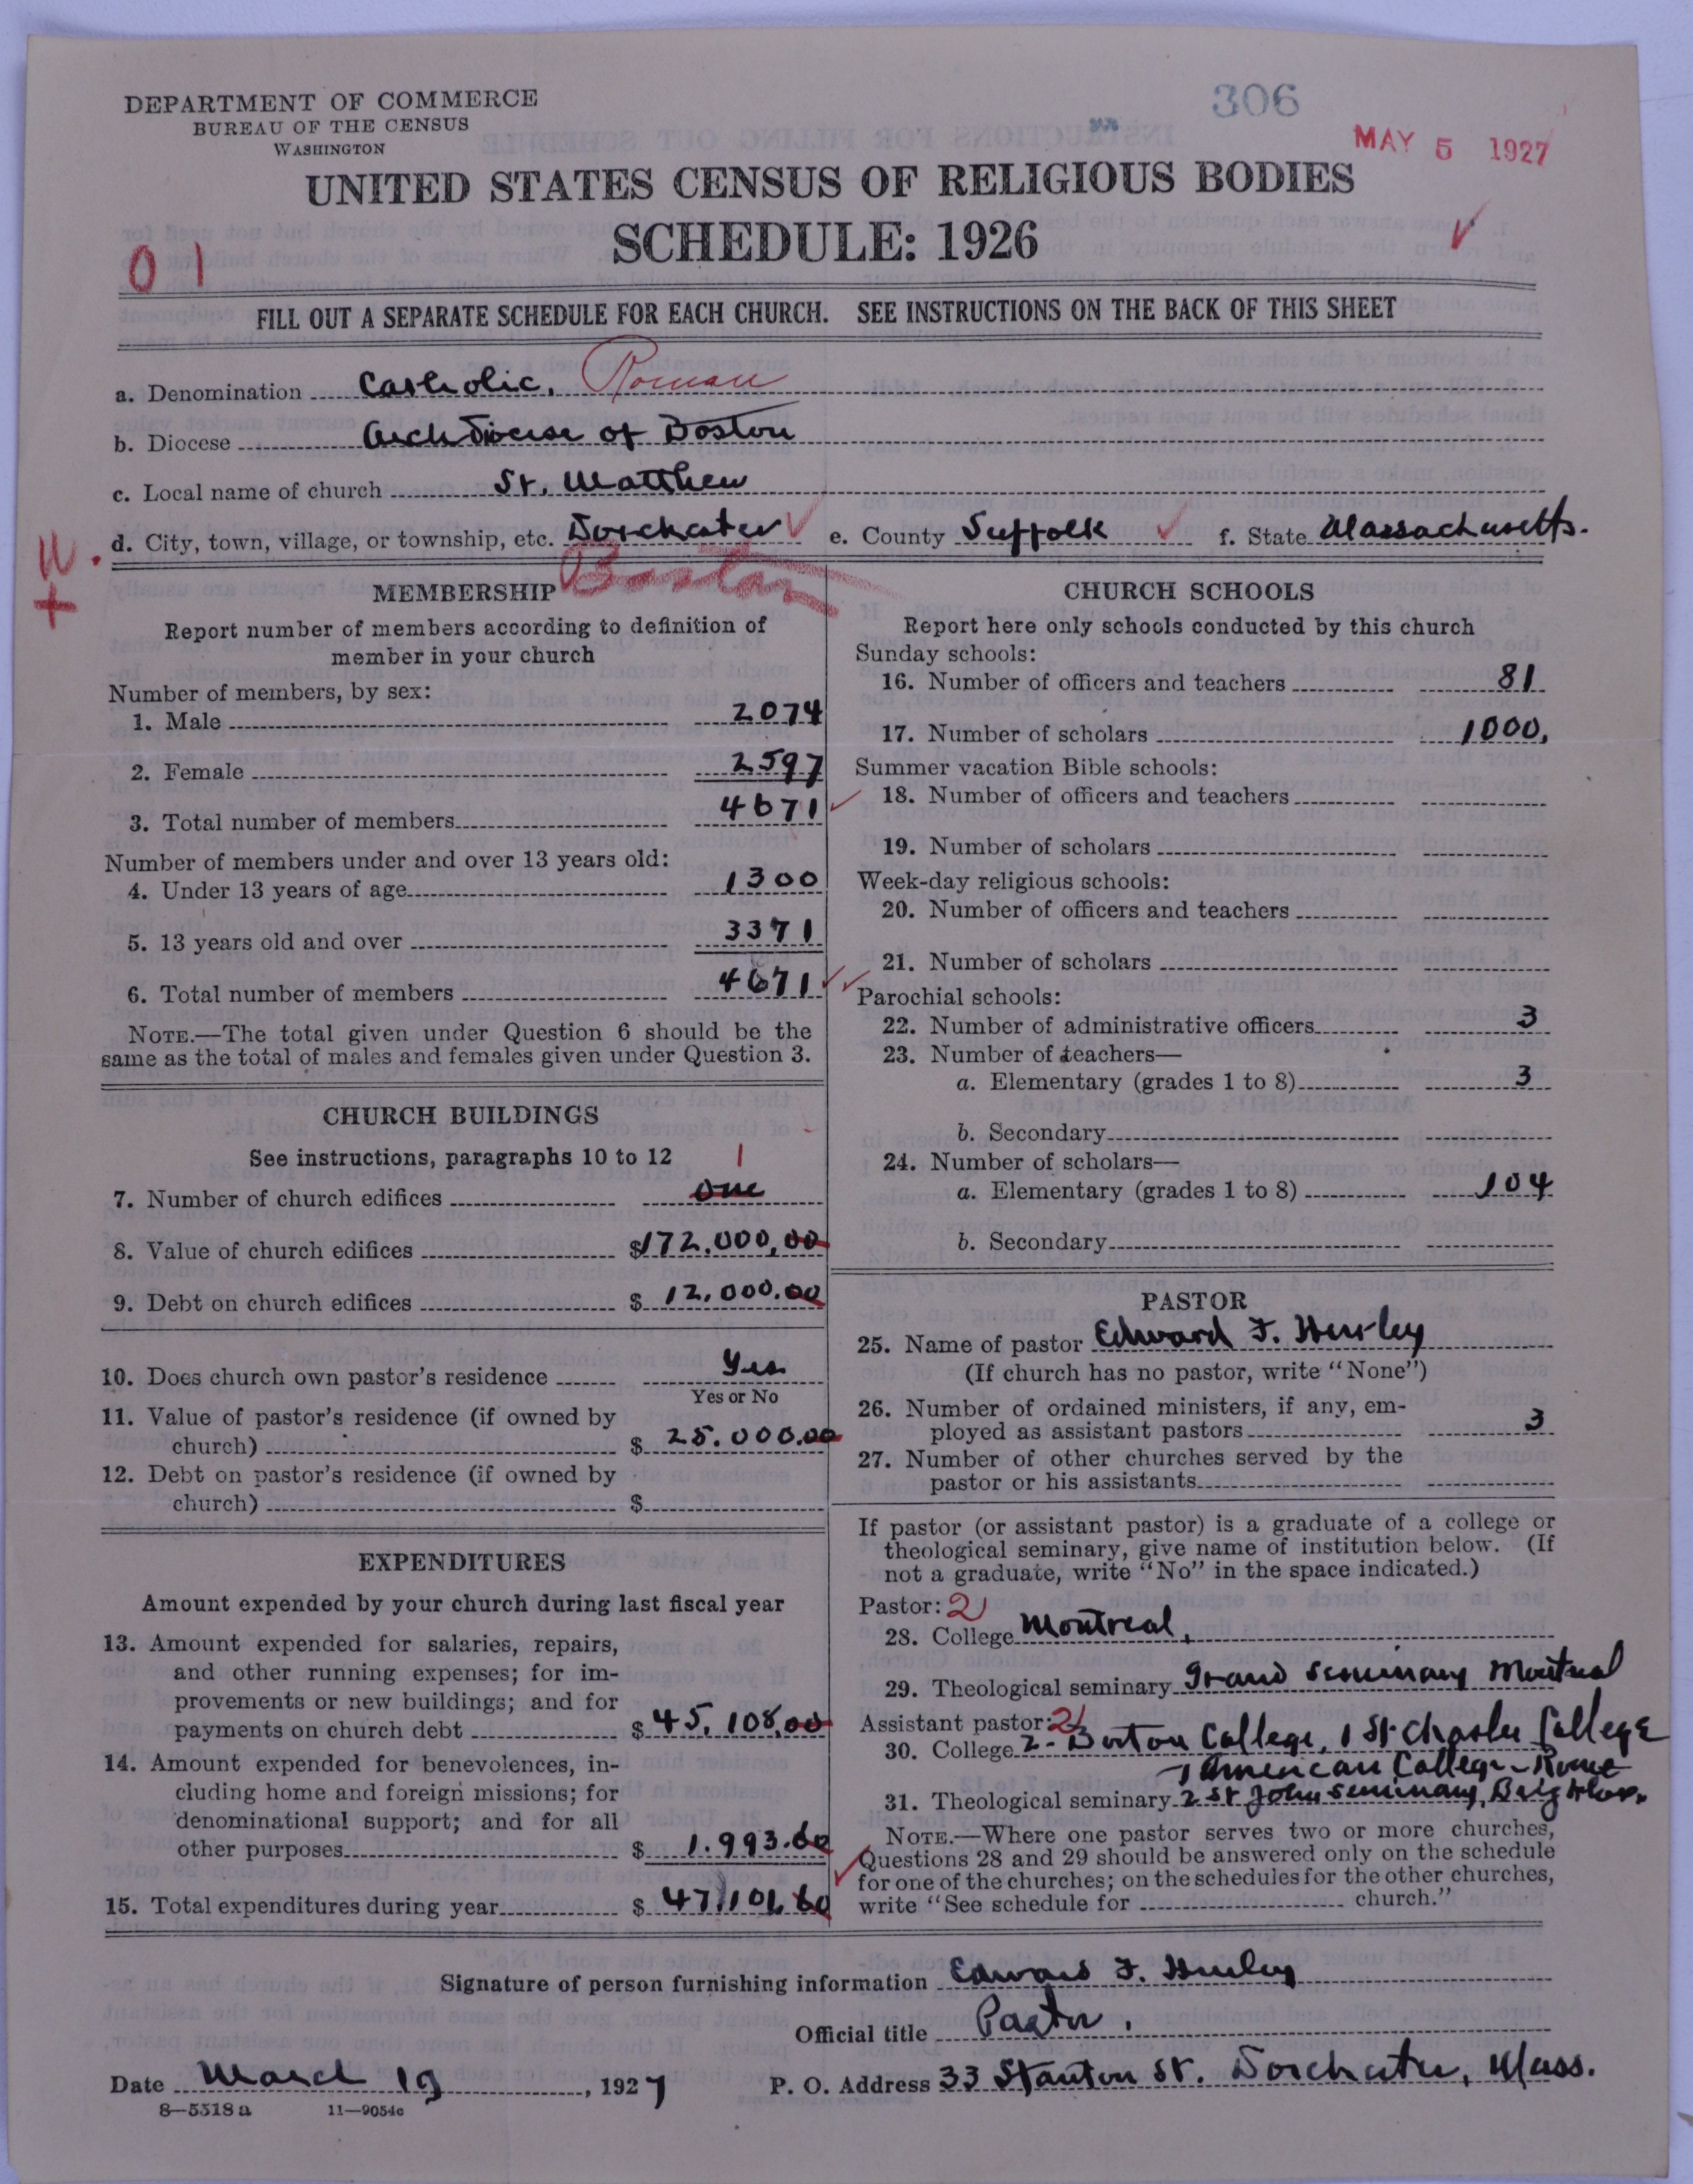 DEPARTMENT OF COMMERCE
BUREAU OF THE CENSUS
WASHINGTON
306
MAY 5 1927
UNITED STATES CENSUS OF RELIGIOUS BODIES
SCHEDULE: 1926
01
FILL OUT A SEPARATE SCHEDULE FOR EACH CHURCH. SEE INSTRUCTIONS ON THE BACK OF THIS SHEET
a. Denomination Catholic, Roman
b. Diocese Archdiocese of Boston
c. Local name of church St. Matthew
d. City, town, village, or township, etc. Dorchester e. County Suffolk f. State Massachusetts.
Boston
MEMBERSHIP
Report number of members according to definition of
member in your church
Number of members, by sex:
1. Male 2074
2. Female 2597
3. Total number of members 4671
Number of members under and over 13 years old:
4. Under 13 years of age 1300
5. 13 years old and over 3371
6. Total number of members 4671
NOTE.—The total given under Question 6 should be the
same as the total of males and females given under Question 3.
CHURCH BUILDINGS
See instructions, paragraphs 10 to 12
1
7. Number of church edifices One
8. Value of church edifices $172,000,00
9. Debt on church edifices $ 12.000.00
10. Does church own pastor's residence Yes
Yes or No
11. Value of pastor's residence (if owned by
church) $ 25.000.00
12. Debt on pastor's residence (if owned by
church) $
EXPENDITURES
Amount expended by your church during last fiscal year
13. Amount expended for salaries, repairs,
and other running expenses; for im-
provements or new buildings; and for
payments on church debt $ 45,108.00
14. Amount expended for benevolences, in-
cluding home and foreign missions; for
denominational support; and for all
other purposes $ 1.993.60
15. Total expenditures during year $ 47,101.60
CHURCH SCHOOLS
Report here only schools conducted by this church
Sunday schools:
16. Number of officers and teachers 81
17. Number of scholars 1000,
Summer vacation Bible schools:
18. Number of officers and teachers
19. Number of scholars
Week-day religious schools:
20. Number of officers and teachers
21. Number of scholars
Parochial schools:
22. Number of administrative officers 3
23. Number of teachers—
a. Elementary (grades 1 to 8) 3
b. Secondary
24. Number of scholars—
a. Elementary (grades 1 to 8) 104
b. Secondary
PASTOR
25. Name of pastor Edward F. Hurley
(If church has no pastor, write "None")
26. Number of ordained ministers, if any, em-
ployed as assistant pastors 3
27. Number of other churches served by the
pastor or his assistants
If pastor (or assistant pastor) is a graduate of a college or
theological seminary, give name of institution below. (If
not a graduate, write "No" in the space indicated.)
Pastor: 2
28. College Montreal,
29. Theological seminary Grand Seminary Montreal
Assistant pastor: 2
30. College 2- Boston College, 1 St Charles College
1 American College - Rome
31. Theological seminary 2 St John Seminary, Brighton.
NOTE.—Where one pastor serves two or more churches,
Questions 28 and 29 should be answered only on the schedule
for one of the churches; on the schedules for the other churches,
write "See schedule for church."
Signature of person furnishing information Edward F. Hurley
Official title Pastor.
Date March 19, 1927 P. O. Address 33 Stanton St. Dorchester, Mass.
8—5518 a 11—9054c